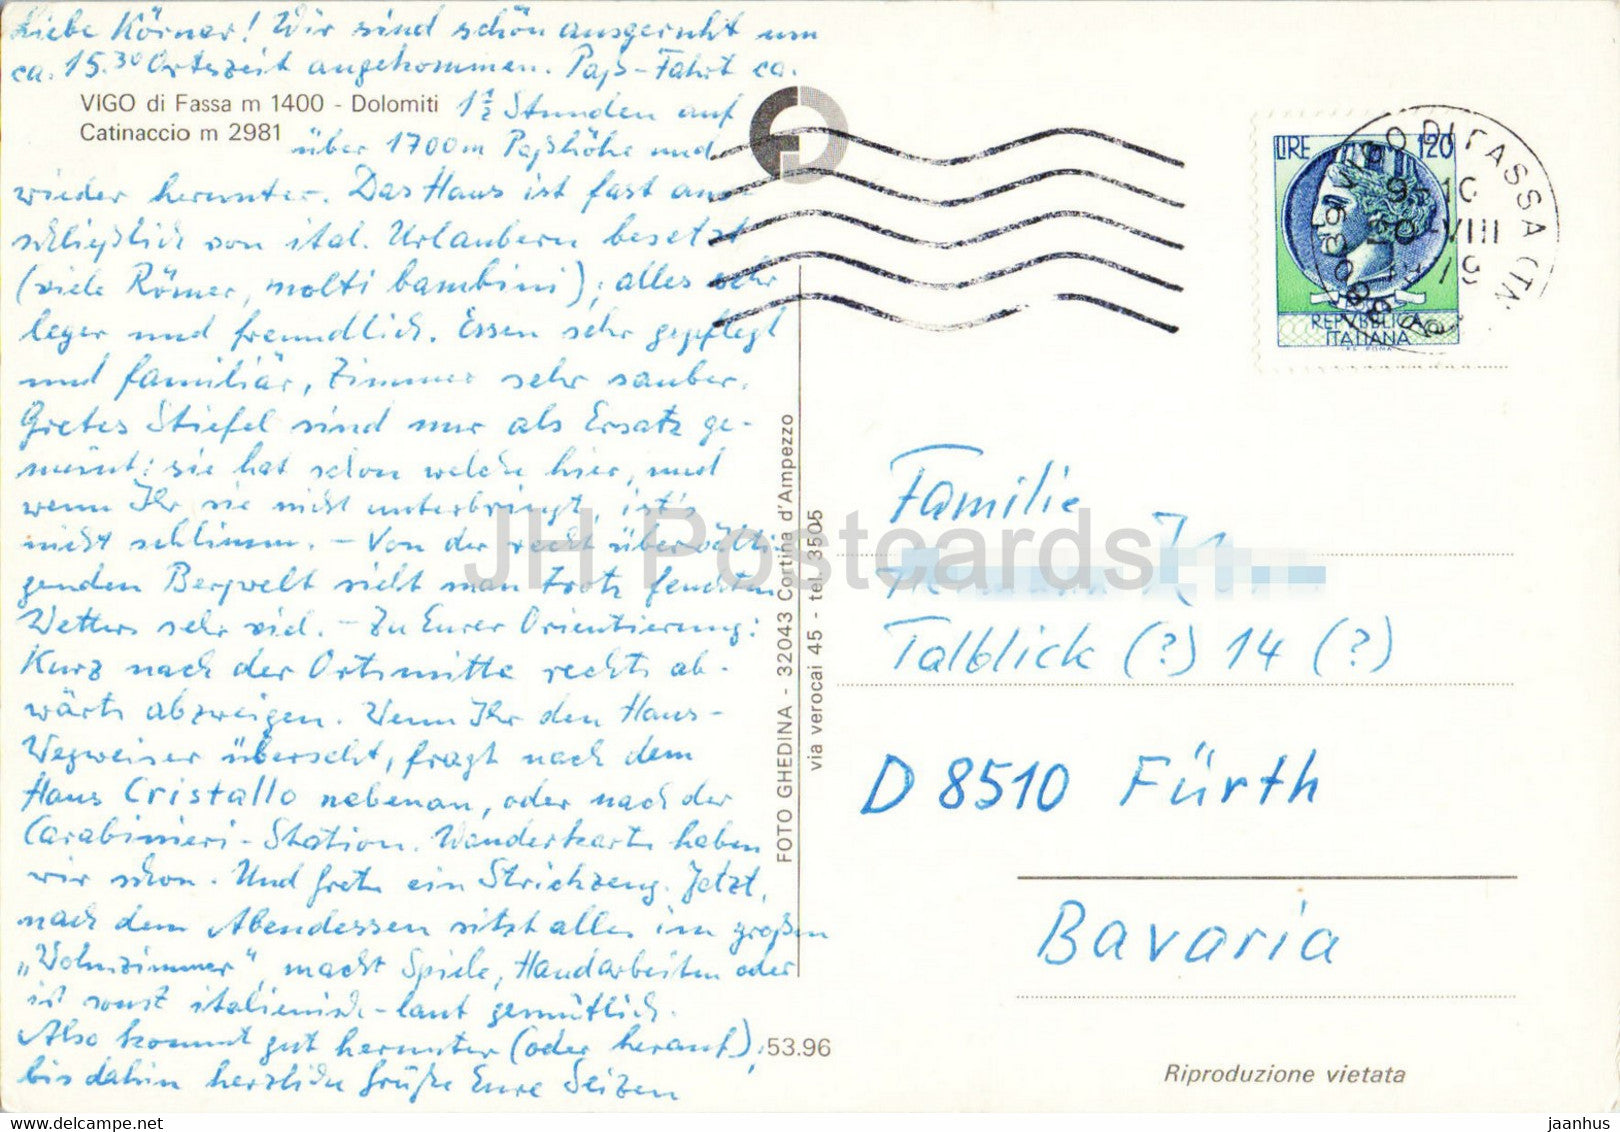 Liebe Körner! Wir sind schön ausgeruht um
ca. 15.30 Ortszeit angekommen. Paß-Fahrt ca.
VIGO di Fassa m 1400 - Dolomiti
Catinaccio m 2981
1½ Stunden auf
über 1700m Paßhöhe und
wieder herunter. Das Haus ist fast aus-
schließlich von ital. Urlaubern besetzt
(viele Römer, molti bambini); alles sehr
leger und freundlich. Essen sehr gepflegt
und familiär, Zimmer sehr sauber.
Gretes Stiefel sind nur als Ersatz ge-
meint; sie hat schon welche hier, und
wenn Ihr sie nicht unterbringt, ist's
nicht schlimm. – Von der recht überwälti-
genden Bergwelt sieht man trotz feuchten
Wetters sehr viel. – Zu Eurer Orientierung:
Kurz nach der Ortsmitte rechts ab-
wärts abzweigen. Wenn Ihr den Haus-
Wegweiser überseht, fragt nach dem
Haus Cristallo nebenan, oder nach der
Carabinieri-Station. Wanderkarte haben
wir schon. Und Grete ein Strickzeug. Jetzt,
nach dem Abendessen sitzt alles im großen
„Wohnzimmer", macht Spiele, Handarbeiten oder
ist sonst italienisch-laut gemütlich.
Also kommt gut herunter (oder herauf);
bis dahin herzliche Grüße Eure Seizen
53.96
FOTO GHEDINA - 32043 Cortina d'Ampezzo
via verocai 45 - tel. 3505
LIRE 120
REPVBBLICA
ITALIANA
VIGO DI FASSA (TN)
Familie
Talblick (?) 14 (?)
D 8510 Fürth
Bavaria
Riproduzione vietata
JH Postcards
www.delcampe.net
jaanhus